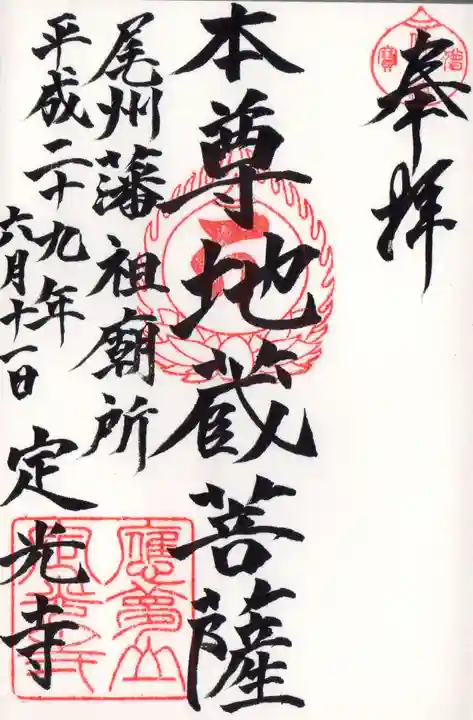 奉拝
本尊地蔵菩薩
尾州藩祖廟所
平成二十九年
六月十一日
定光寺
應夢山
定光寺